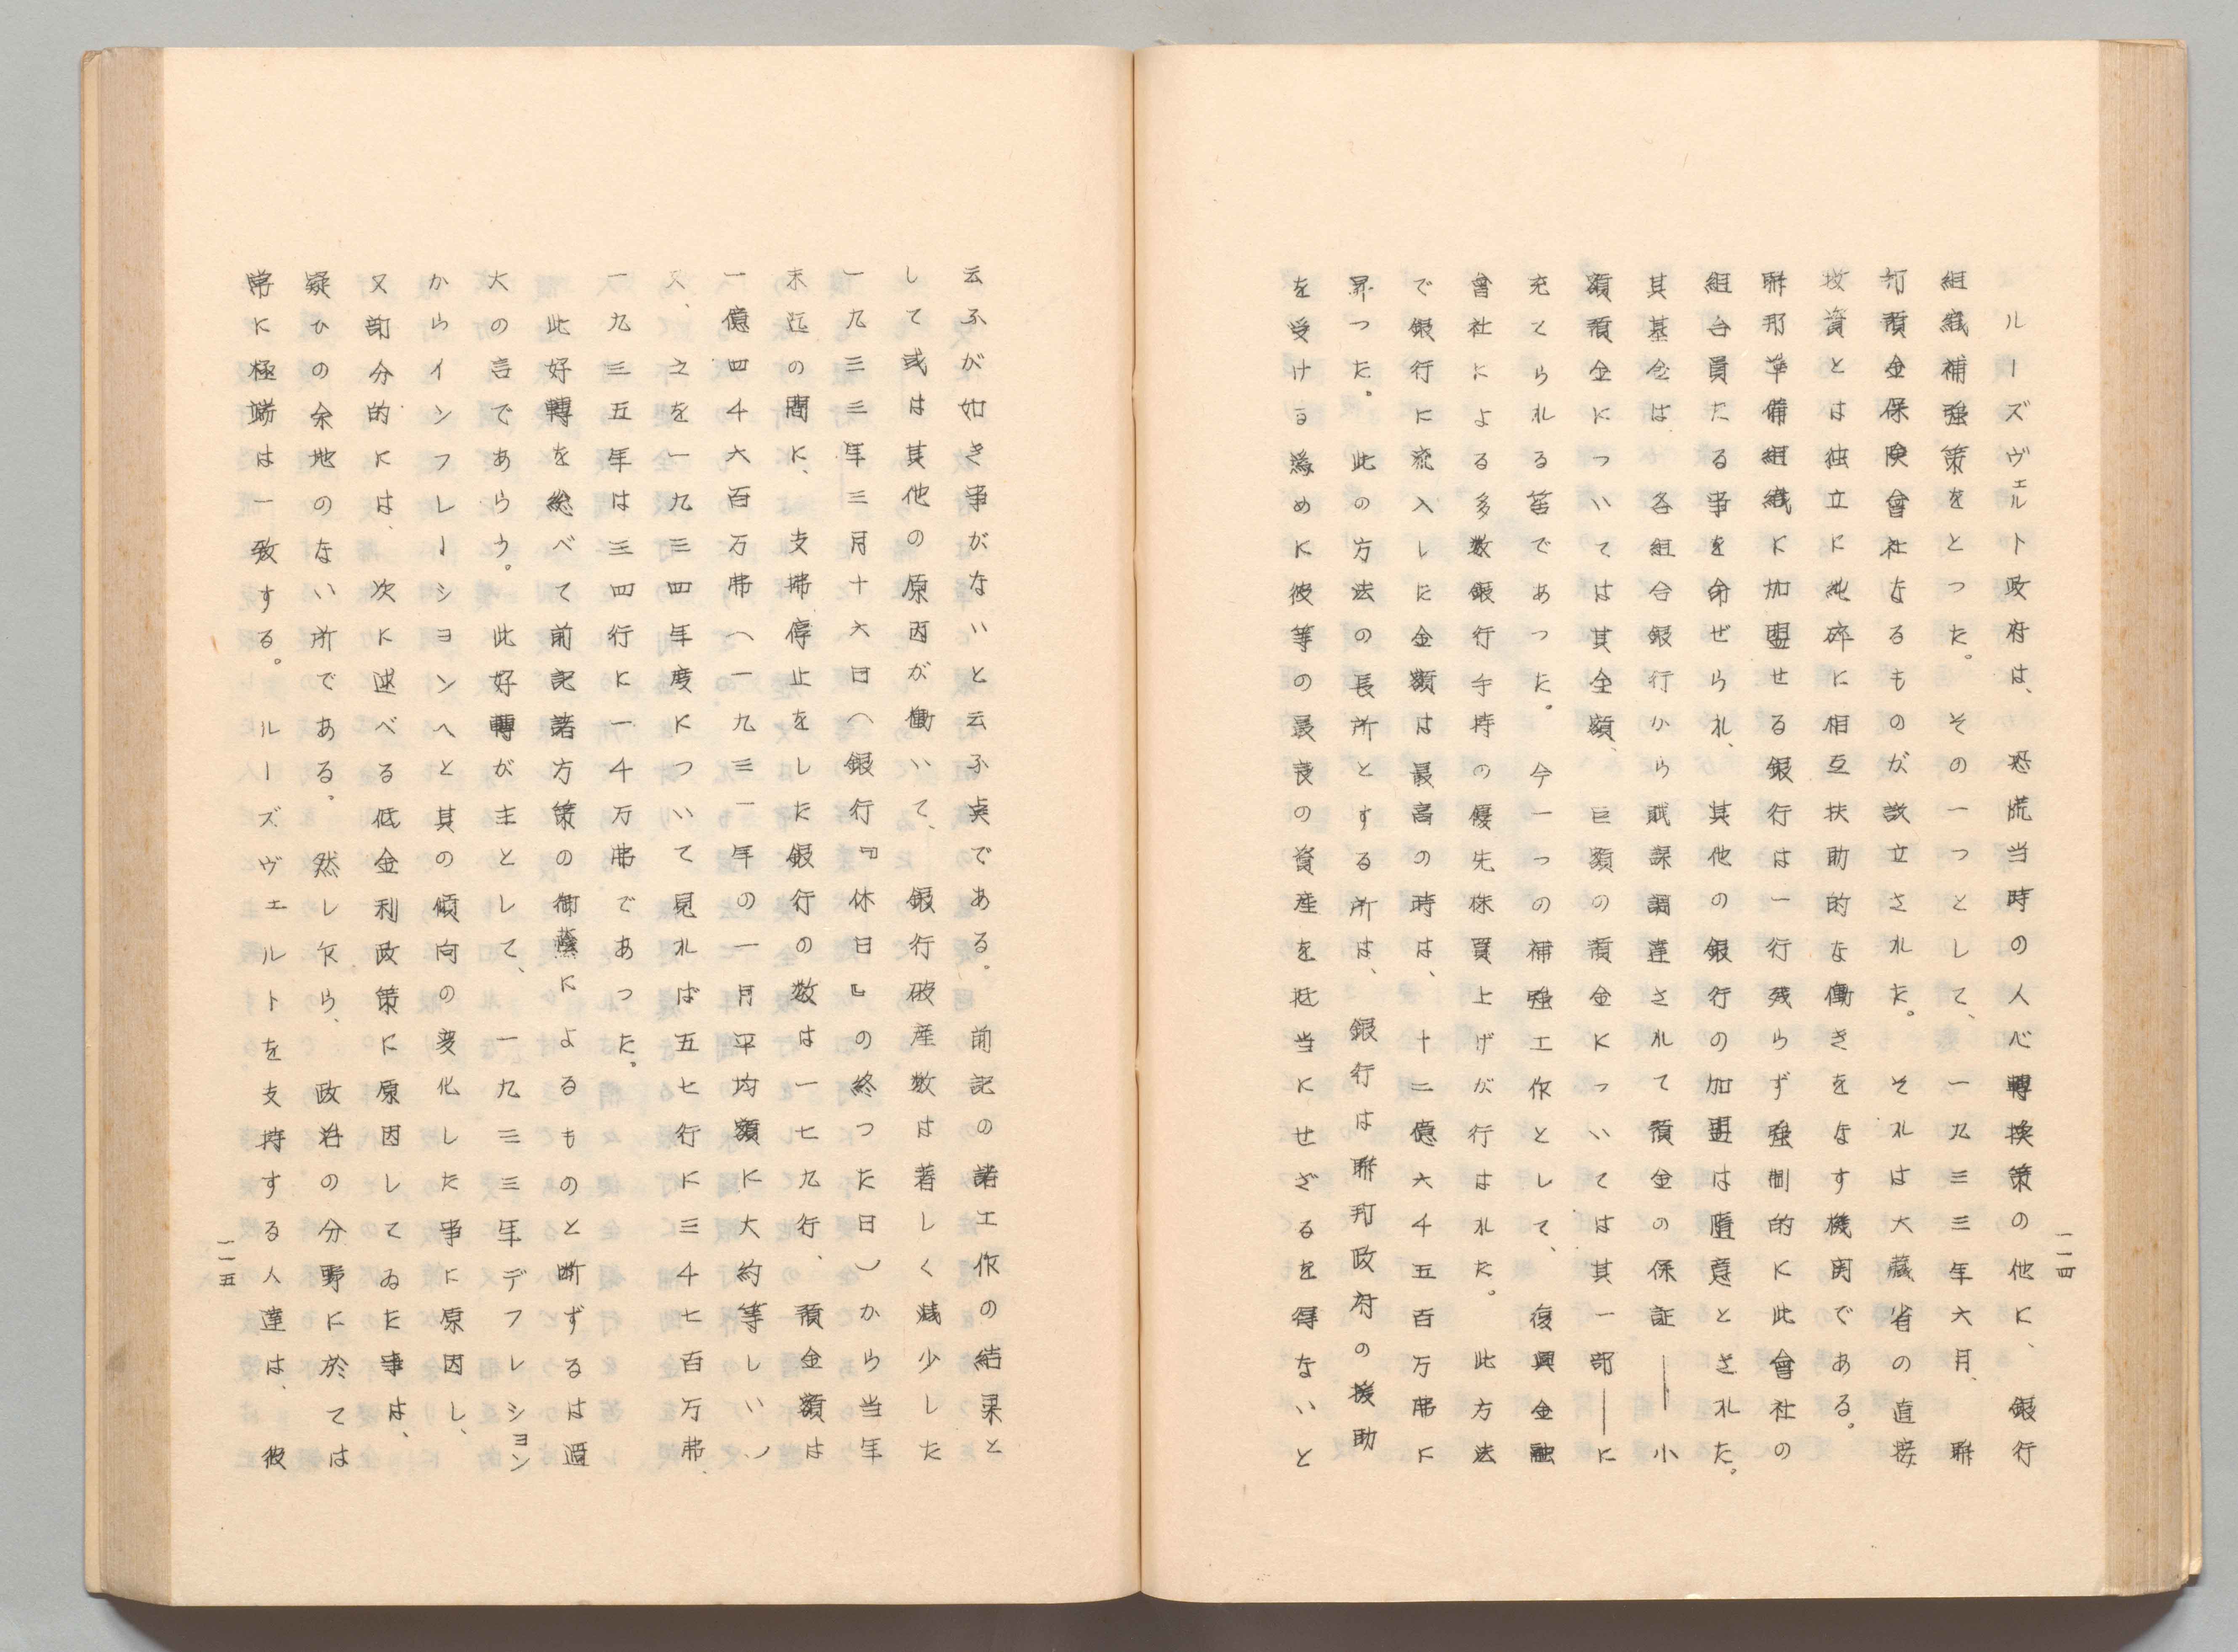 ルーズヴェルト政府は、恐慌当時の人心轉換策の他に、銀行
組織補強策をとつた。その一つとして、一九三三年六月、聯
邦預金保険會社なるものが設立された。それは大藏省の直接
投資とは独立に純碎に相互扶助的な働きをなす機関である。
聯邦準備組織に加盟せる銀行は一行残らず強制的に此會社の
組合員たる事を命ぜられ、其他の銀行の加盟は随意とされた。
其基金は各組合銀行から賦課調達されて預金の保証――小
額預金については其全額、巨額の預金については其一部――に
充てられる筈であつた。今一つの補強工作として、復興金融
會社による多数銀行手持の優先株買上げが行はれた。此方法
で銀行に流入しに金額は最高の時は、十二億六千五百万弗に
昇つた。此の方法の長所とする所は、銀行は聯邦政府の援助
を受ける為めに彼等の最良の資産を抵当にせざるを得ないと
一一四
云ふが如き事がないと云ふ点である。前記の諸工作の結果と
して或は其他の原因が働いて、銀行破産数は著しく減少した
一九三三年三月十六日（銀行『休日』の終つた日）から当年
末迄の間に、支拂停止をした銀行の数は一七九行、預金額は
一億四千六百万弗（一九三一年の一月平均額に大約等しい）
又、之を一九三四年度について見れば五七行に三千七百万弗、
一九三五年は三四行に一千万弗であつた。
此好轉を総べて前記諸方策の御蔭によるものと断ずるは過
大の言であらう。此好轉が主として、一九三三年デフレション
からインフレーションへと其の傾向の変化した事に原因し、
又部分的には、次に述べる低金利政策に原因してゐた事は、
疑ひの余地のない所である。然し乍ら、政治の分野に於ては
常に極端は一致する。ルーズヴェルトを支持する人達は、彼
一一五